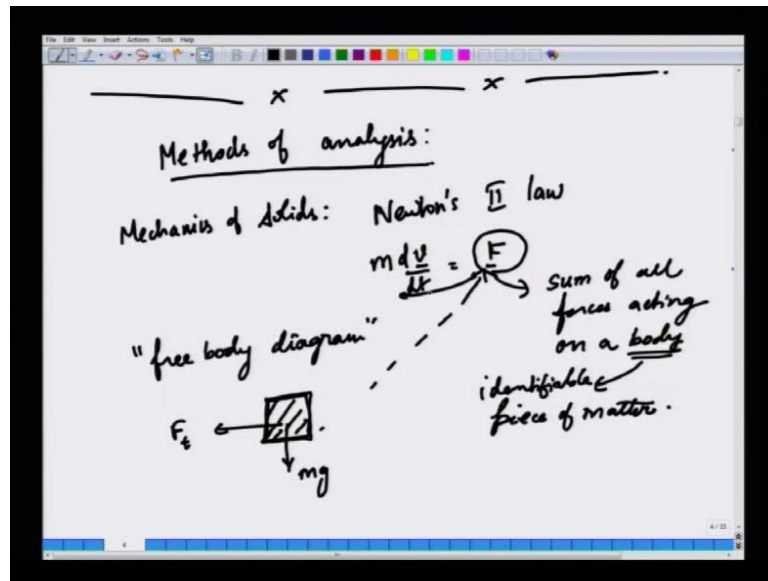 File Edit View Insert Actions Tools Help
x x
Methods of analysis:
Mechanics of Solids: Newton's II law
m dv/dt = F
sum of all
forces acting
on a body
identifiable
piece of matter.
"free body diagram"
F_t
mg
4/33
4